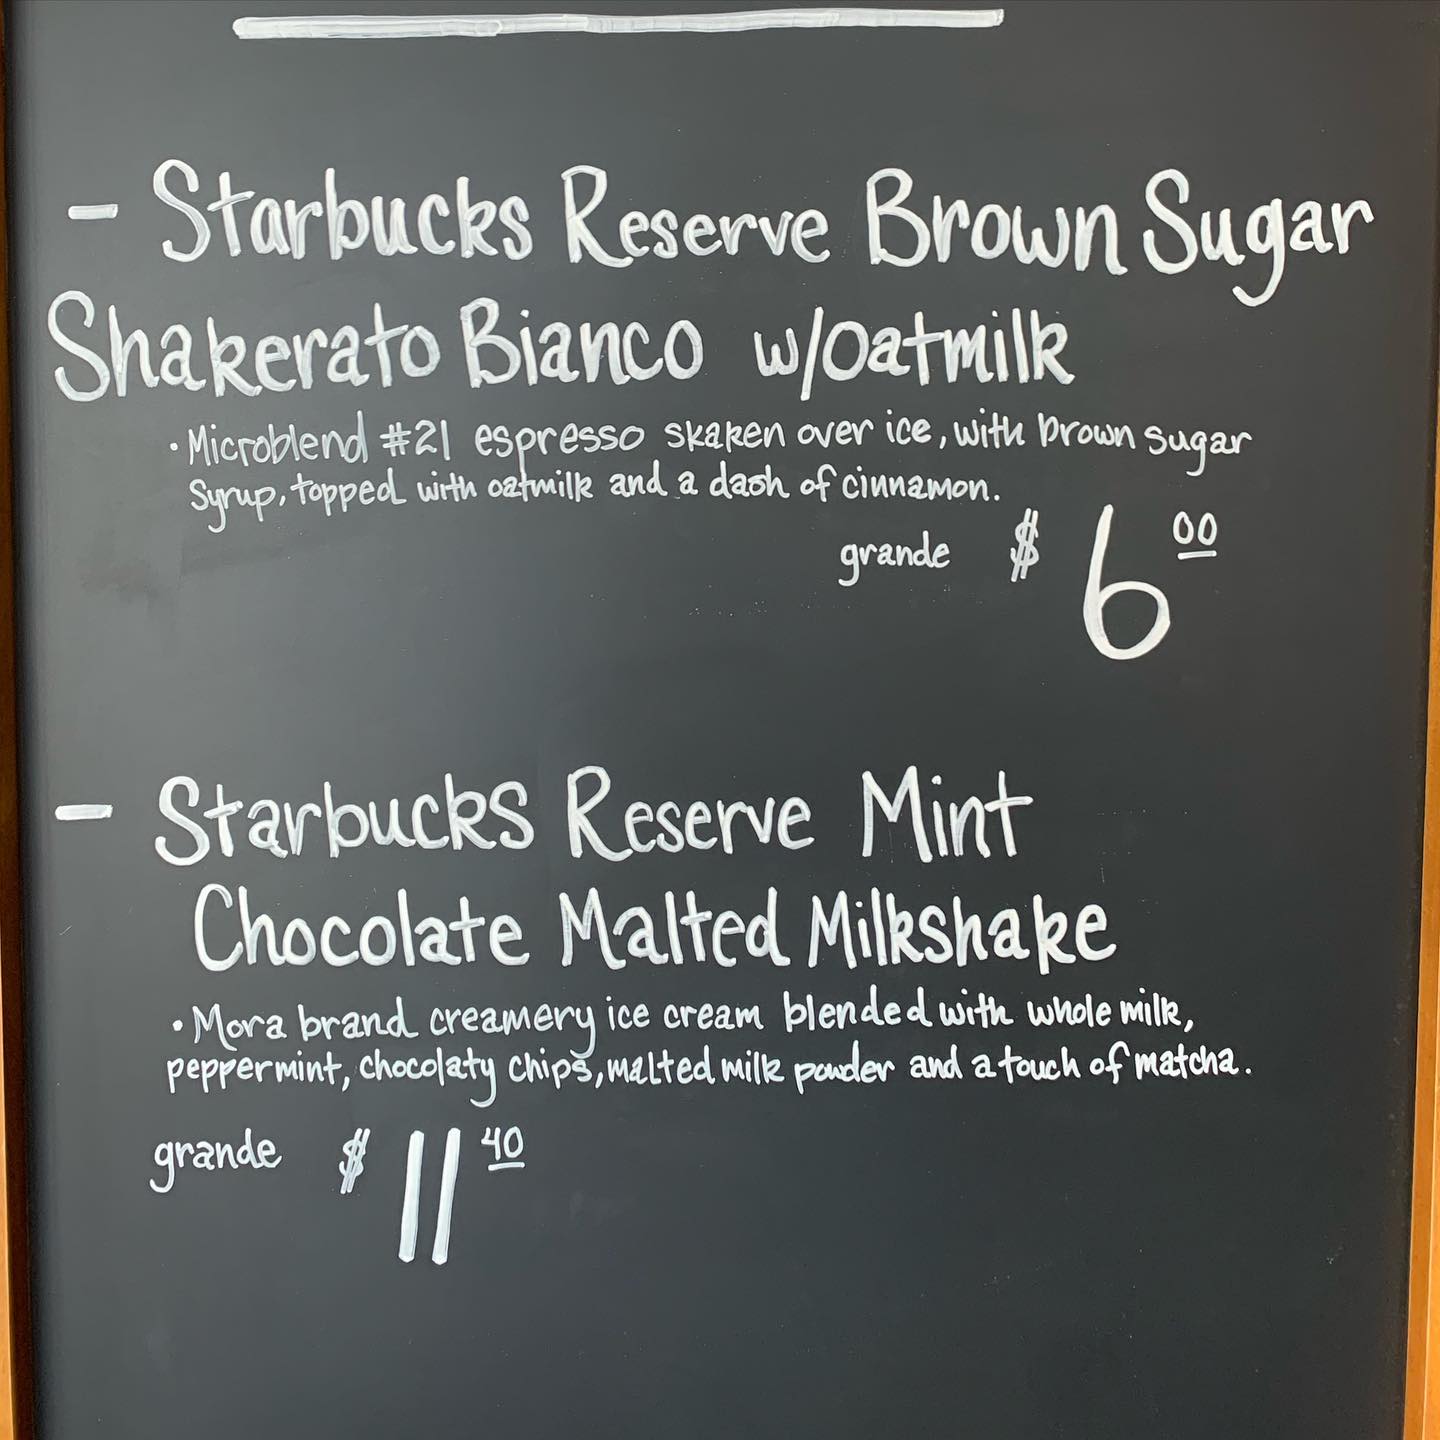 - Starbucks Reserve Brown Sugar
Shakerato Bianco w/oatmilk
• Microblend #21 espresso skaken over ice, with brown sugar
syrup, topped with oatmilk and a dash of cinnamon.
grande $ 6 00
- Starbucks Reserve Mint
Chocolate Malted Milkshake
• Mora brand creamery ice cream blended with whole milk,
peppermint, chocolaty chips, malted milk powder and a touch of matcha.
grande $ 11 40